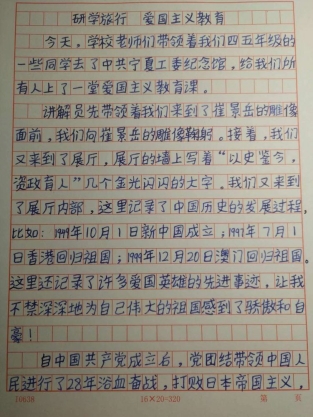 研学旅行 爱国主义教育
今天,学校老师们带领着我们四五年级的
一些同学去了中共宁夏工委纪念馆,给我们所
有人上了一堂爱国主义教育课。
讲解员先带领着我们来到了崔景岳的雕像
面前,我们向崔景岳的雕像鞠躬。接着,我们
又来到了展厅,展厅的墙上写着“以史鉴今,
资政育人”几个金光闪闪的大字。我们又来到
了展厅内部,这里记录了中国历史的发展过程,
比如:1949年10月1日新中国成立;1997年7月1
日香港回归祖国;1999年12月20日澳门回归祖国。
这里还记录了许多爱国英雄的先进事迹,让我
不禁深深地为自己伟大的祖国感到了骄傲和自
豪!
自中国共产党成立后,党团结带领中国人
民进行了28年浴血奋战,打败日本帝国主义,
16×20=320 第 页